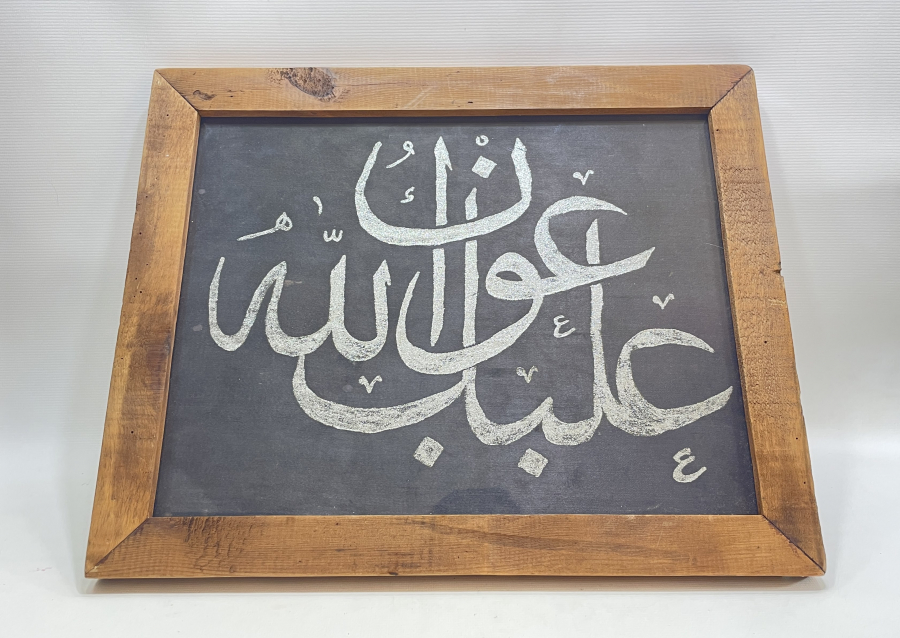 علباب عون الله